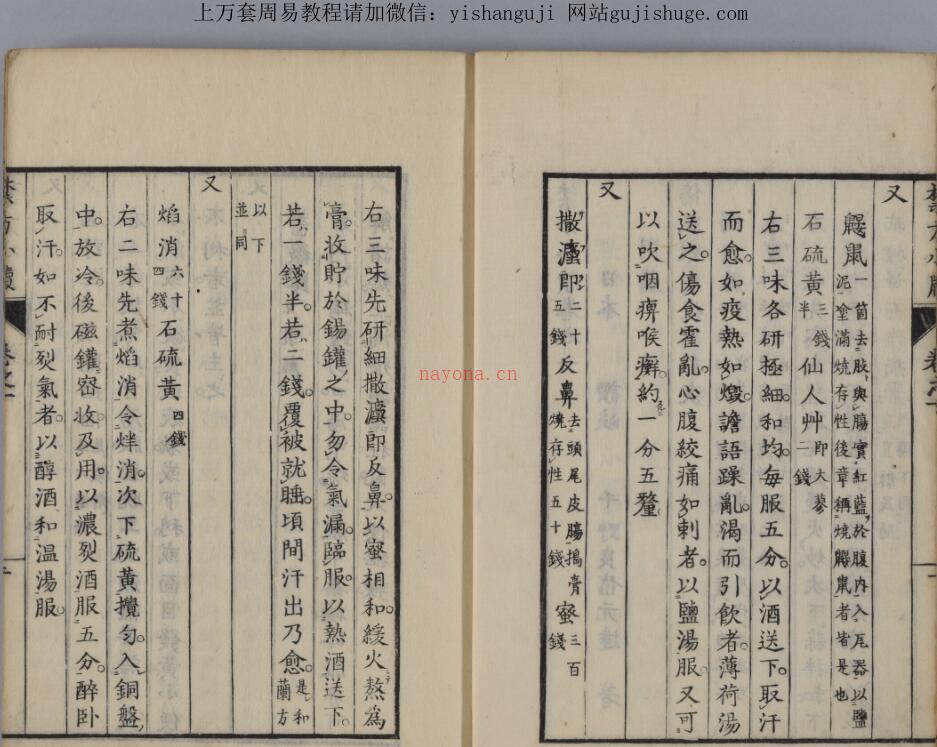 上万套周易教程请加微信：yishanguji 网站gujishuge.com
又
鼹鼠一箇去肢與腸實紅藍於腹内入瓦器以鹽泥塗滿燒存性後章稱燒鼹鼠者皆是也
石硫黄三錢半仙人艸即大蓼二錢
右三味各研極細和均每服五分以酒送下取汗
而愈如疫熱如燬譫語躁亂渴而引飲者薄荷湯
送之傷食霍亂心腹絞痛如刺者以鹽湯服又可
以吹咽痹喉癬約一分五釐
又
撒灋即二十五錢反鼻去頭尾皮腸搗膏燒存性五十錢蜜三百錢
右三味先研細撒灋即反鼻以蜜相和緩火熬為
膏收貯於錫罐之中勿令氣漏臨服以熱酒送下
若一錢半若二錢覆被就睡頃間汗出乃愈是和蘭方
以下並同
又
焰消六十四錢石硫黄四錢
右二味先煮焰消令烊消次下硫黄攪勻入銅盤
中放冷後磁罐宻收及用以濃烈酒服五分醉卧
取汗如不耐烈氣者以醇酒和温湯服
nayona.cn